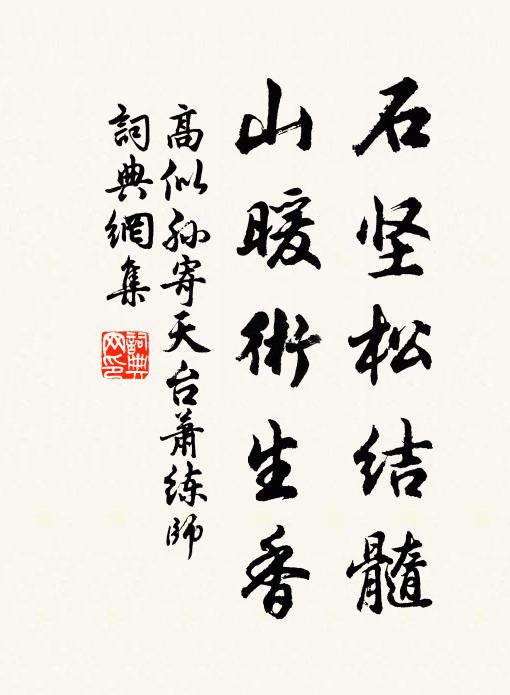 石坚松结髓
山暖術生香
高似孙寄天台萧练師
詞典網集
詞典網印